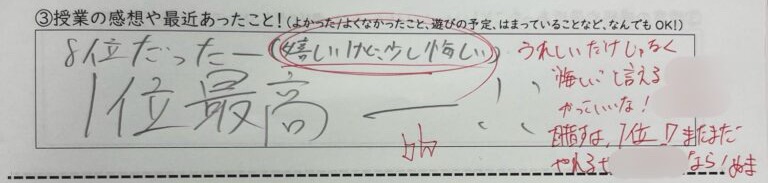 ③授業の感想や最近あったこと!(よかった/よくなかったこと、遊びの予定、はまっていることなど、なんでもOK!)
8位だったー(嬉しいけど少し悔しい)
1位最高ー!!
うれしいだけじゃなく
"悔しい"と言える
かっこいいな!
目指すは、1位!!まだまだ
やれるぞ なら!